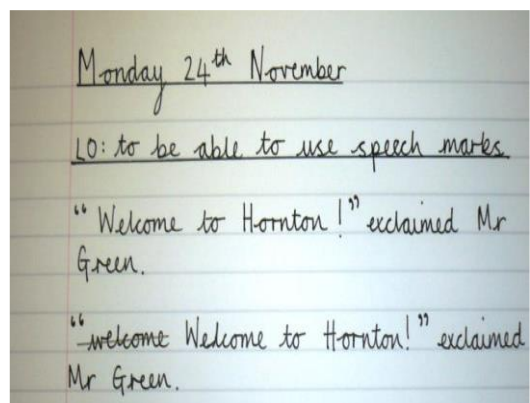 Monday 24th November
LO: to be able to use speech marks
“Welcome to Hornton!” exclaimed Mr
Green.
“welcome Welcome to Hornton!” exclaimed
Mr Green.